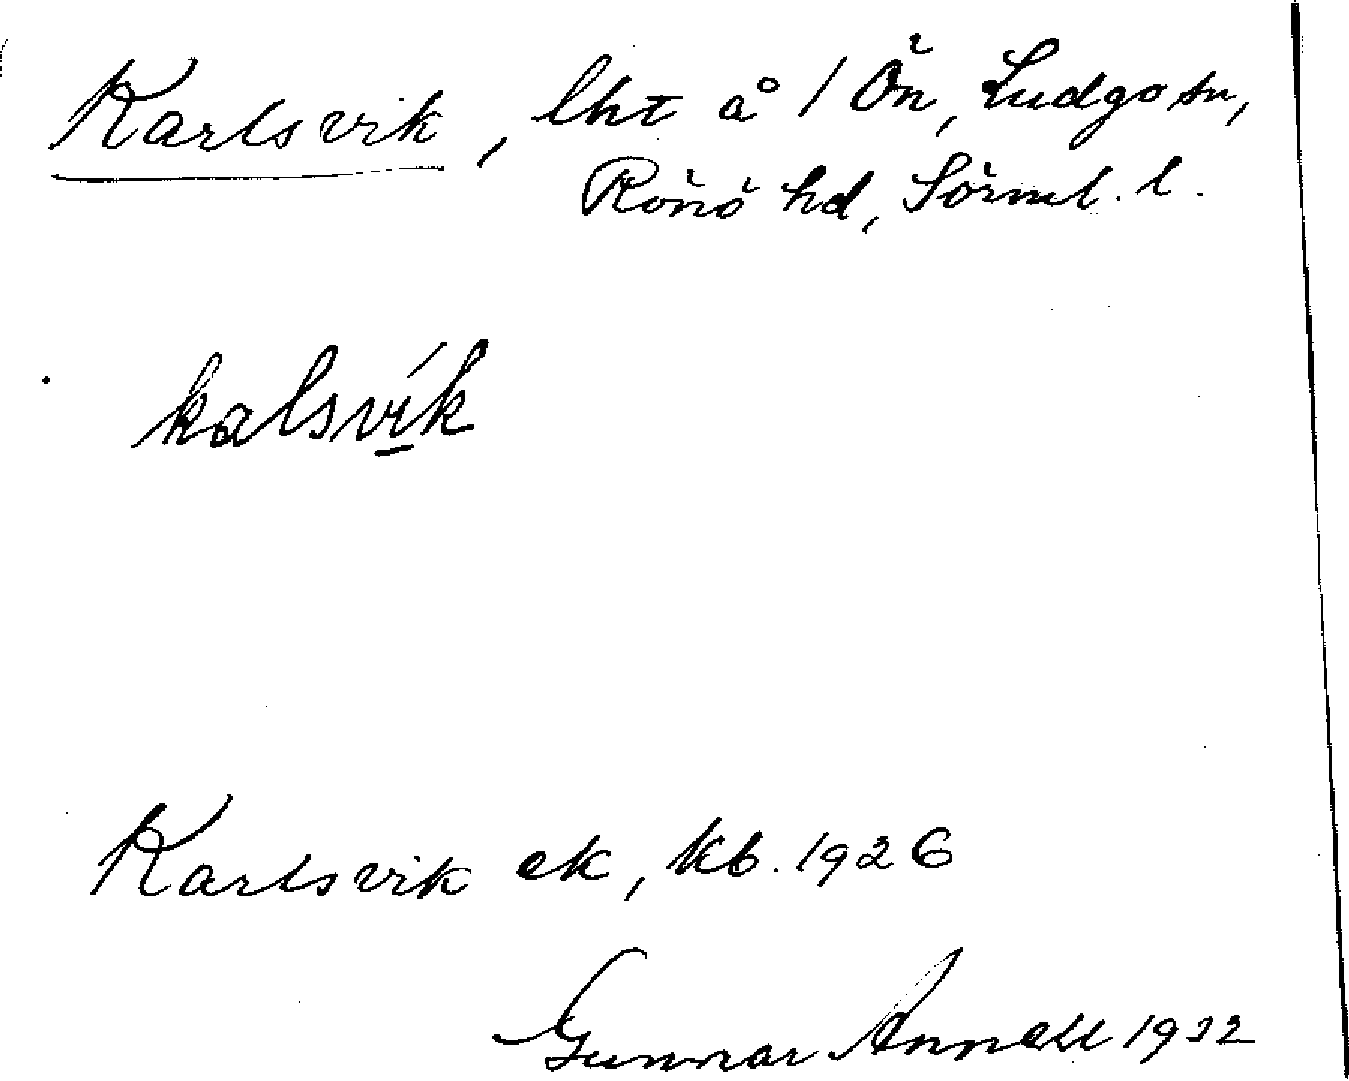 Karlsvik, lht å / Ön, Ludgo sn,
Rönö hd, Sörml. l.
kalsvík
Karlsvik ek, kb. 1926
Gunnar Annell 1932